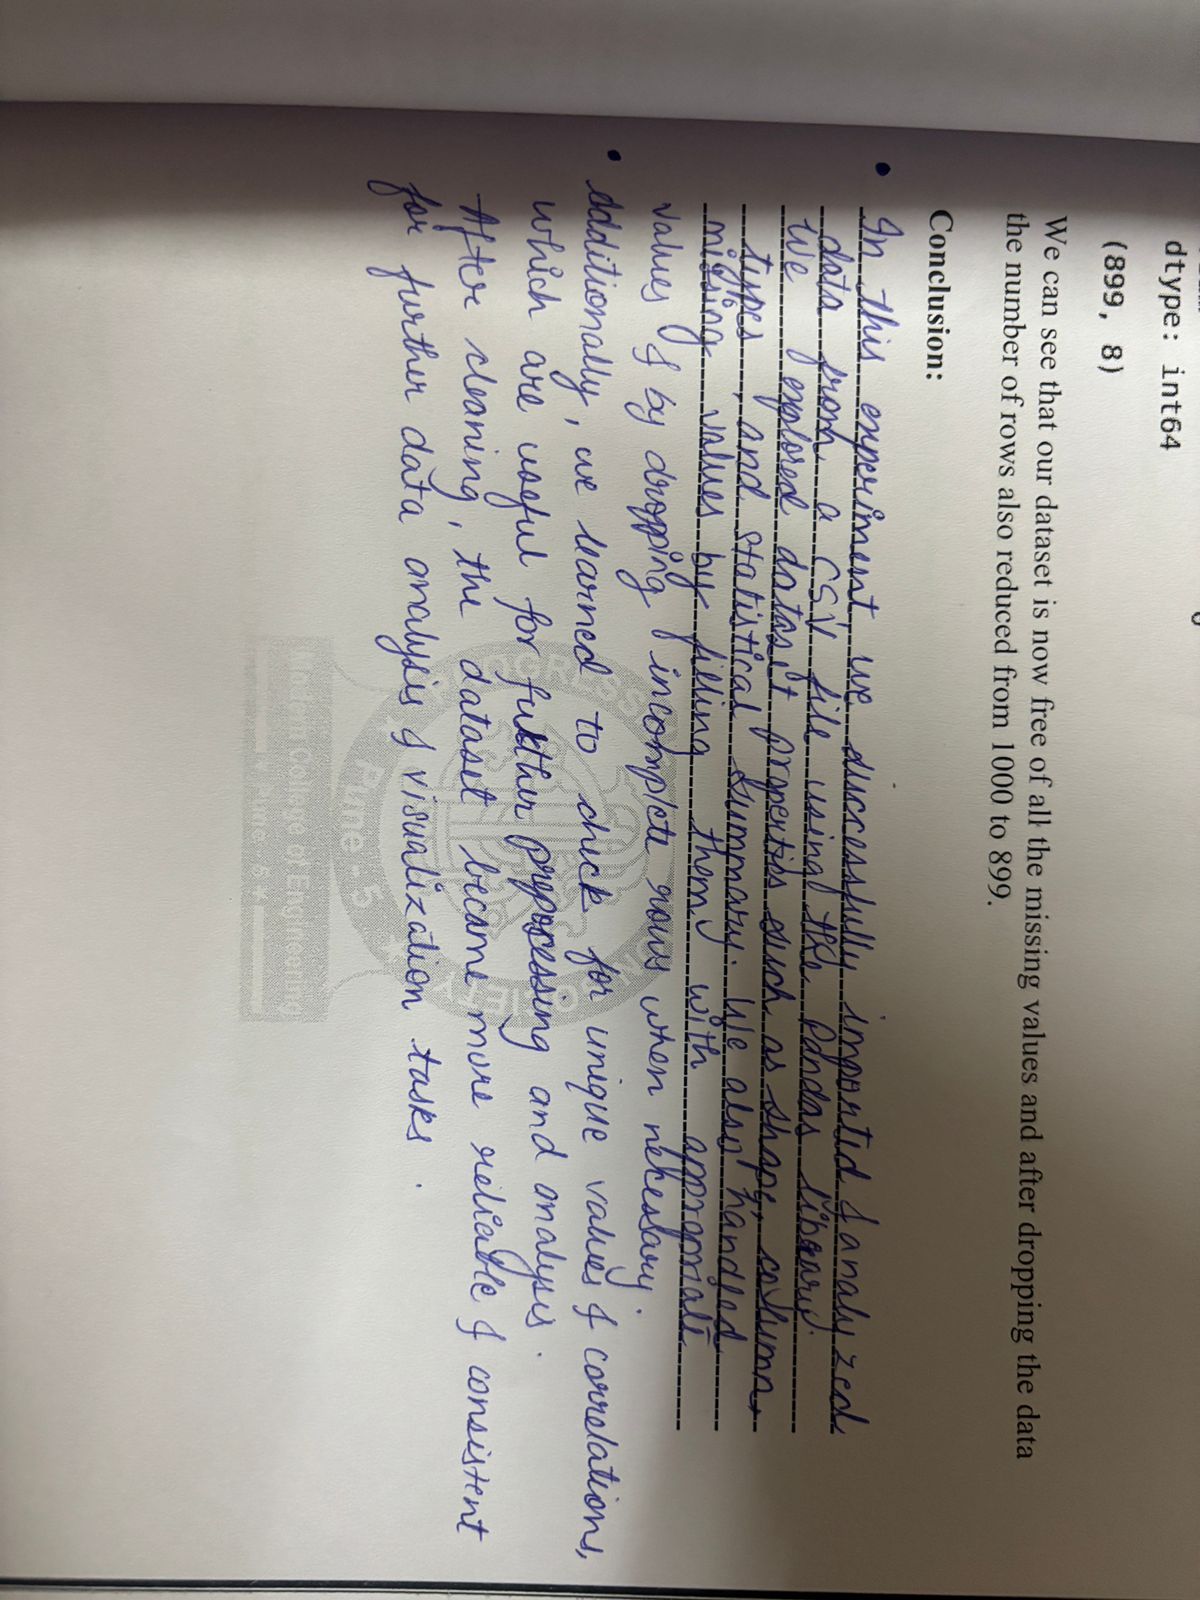 dtype: int64
(899, 8)
We can see that our dataset is now free of all the missing values and after dropping the data
the number of rows also reduced from 1000 to 899.
Conclusion:
• In this experiment we successfully imported & analyzed
data from a CSV file using the pandas library.
We explored dataset properties such as shape, column
types, and statistical summary. We also handled
missing values by filling them with appropriate
values & by dropping incomplete rows when necessary.
• Additionally, we learned to check for unique values & correlations,
which are useful for further preprocessing and analysis.
After cleaning, the dataset became more reliable & consistent
for further data analysis & visualization tasks.
PROGRESS
SOCIETY
Pune - 5
College of Engineering